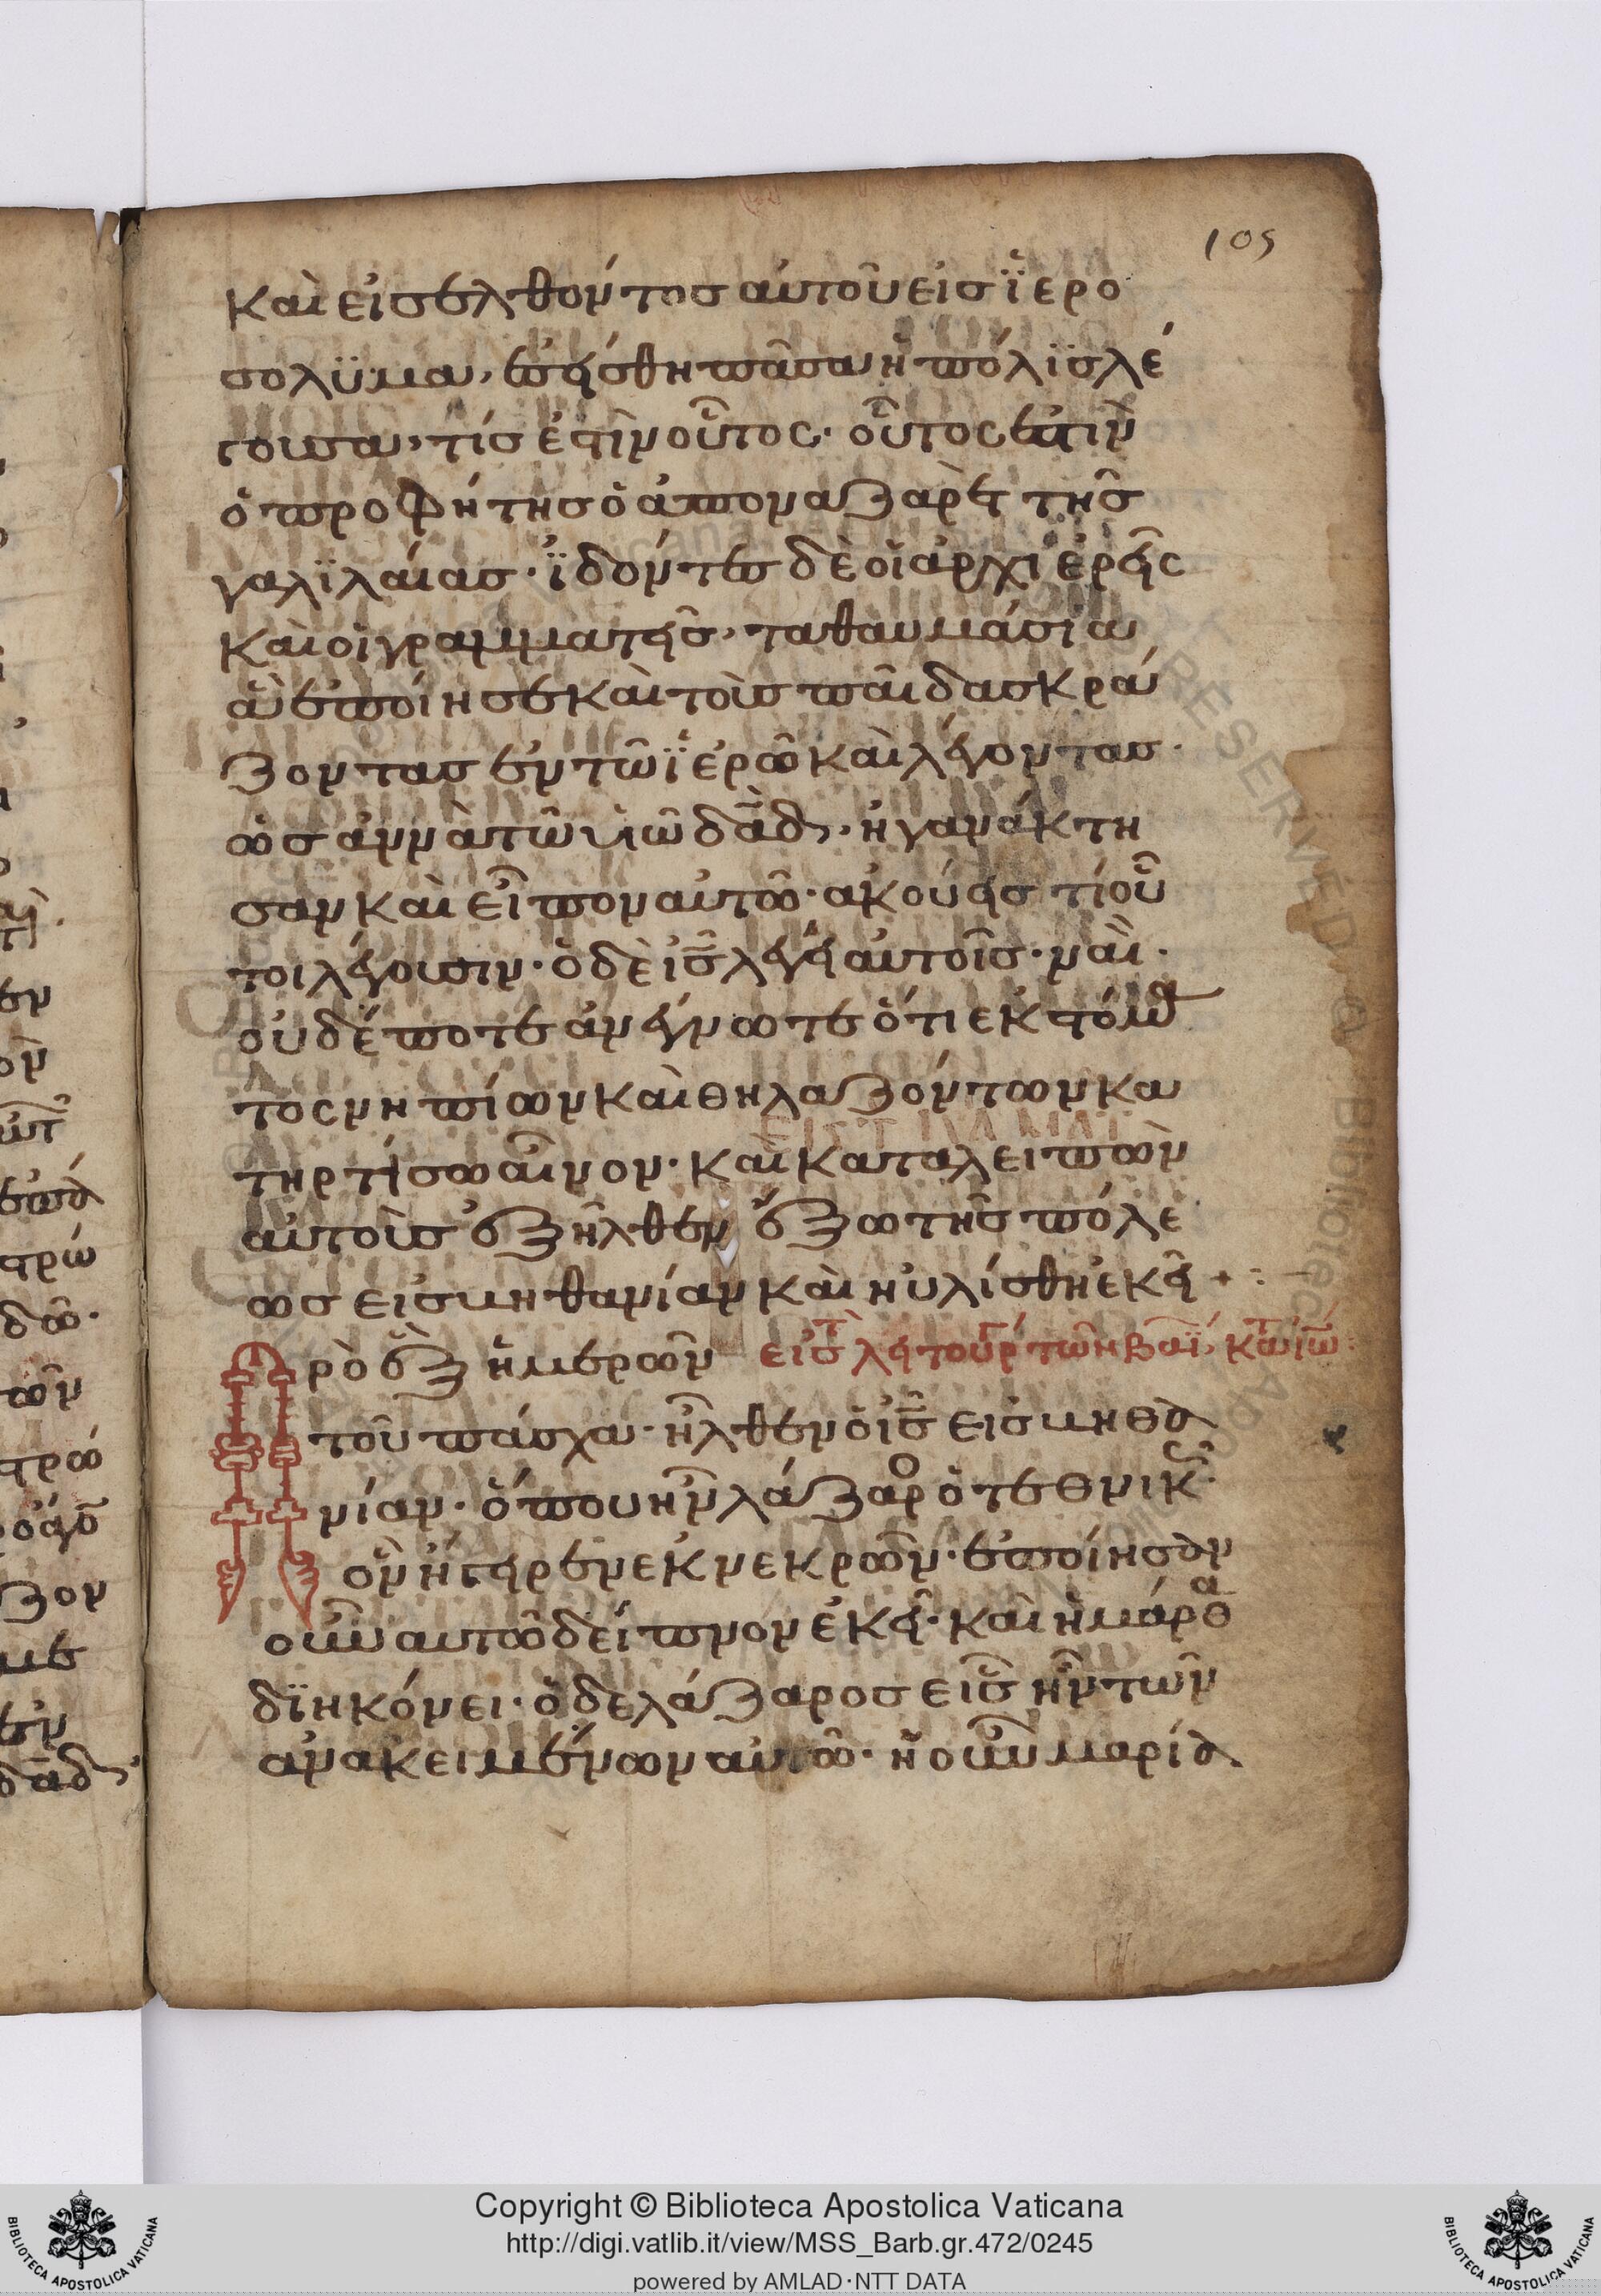 105
καὶ εἰσελθόντος αὐτοῦ εἰς ϊερο
σολϋμα, ἐσείσθη πᾶσα ἡ πόλϊς λέ
γουσα, τίς ἐστὶν οὗτος· οὗτος ἐστιν
ὁ προφήτης ὁ ἀπο ναζαρὲτ τῆς
γαλϊλαίας· ϊδόντες δὲ οἱ ἀρχιερεῖς
καὶ οἱ γραμματεῖς, τα θαυμάσια
ἃ ἐποίησε καὶ τοὺς παῖδας κρά
ζοντας ἐν τῶ ϊερῶ καὶ λέγοντας·
ὡσαννὰ τῶ υἱῶ δᾶδ, ἠγανάκτη
σαν καὶ εἶπον αὐτῶ· ακούεις τί οὗ
τοι λέγουσιν· ὁ δὲ ἰς λέγει αὐτοῖς· ναὶ·
οὐδέποτε ἀνέγνωτε ὅτι εκ στόμα
τος νηπίων καὶ θηλαζόντων κα
τηρτίσω αἶνον· καὶ καταλειπὼν
αὐτοὺς ἐξῆλθεν ἔξω τῆς πόλε
ως εἰς βηθανίαν καὶ ηὐλίσθη ἐκεῖ + :–
Πρὸ ἓξ ἡμερῶν εἰς τ λειτουργ τῶν βαϊ, κτ ἰω
τοῦ πάσχα· ἦλθεν ὁ ἰς εἰς βηθα
νίαν· ὅπου ἦν λάζαρο ὁ τεθνικς·
ὃν ἤγειρεν ἐκ νεκρῶν· ἐποίησαν
οὖν αυτῶ δεῖπνον ἐκεῖ· καὶ ἡ μάρθα
δϊηκόνει· ὁ δε λάζαρος εἷς ἦν τῶν
ἀνακειμένων αὐτῶ· ἡ οὖν μαρία
Copyright © Biblioteca Apostolica Vaticana
http://digi.vatlib.it/view/MSS_Barb.gr.472/0245
powered by AMLAD·NTT DATA
BIBLIOTECA APOSTOLICA VATICANA
BIBLIOTECA APOSTOLICA VATICANA